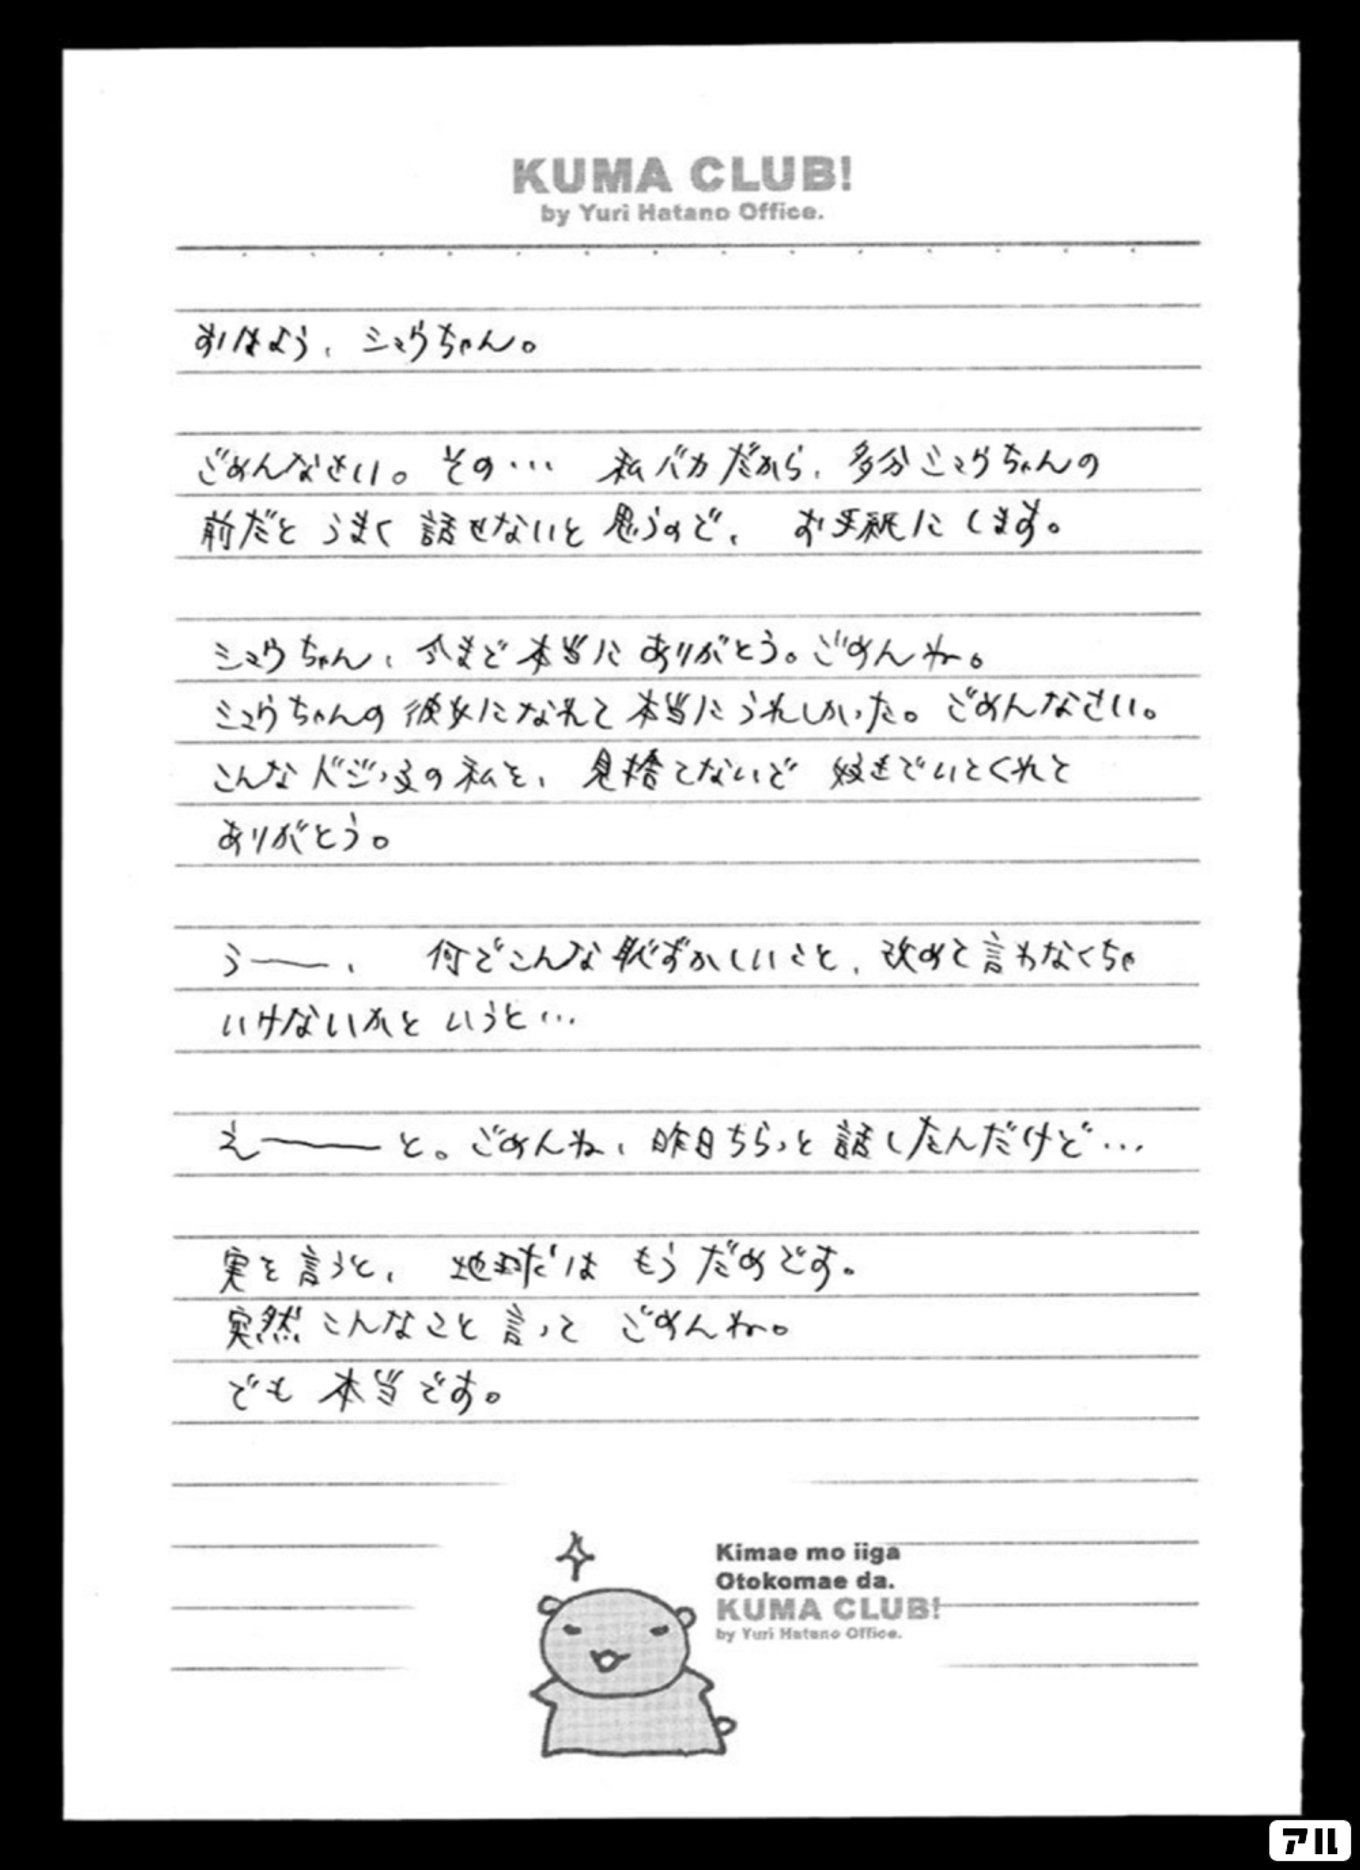 KUMA CLUB!
by Yuri Hatano Office.
おはよう、シュウちゃん。
ごめんなさい。その… 私バカだから、多分シュウちゃんの
前だと うまく 話せないと 思うので、 お手紙に します。
シュウちゃん、今まで本当に ありがとう。ごめんね。
シュウちゃんの 彼女になれて 本当にうれしかった。ごめんなさい。
こんなドジッ娘の私を、 見捨てないで 好きでいてくれて
ありがとう。
うー、 何でこんな恥ずかしいこと、改めて言わなくちゃ
いけないかと いうと…
えーと。ごめんね、昨日ちらっと 話したんだけど…
実を言うと、 地球は もう だめです。
突然 こんなこと 言って ごめんね。
でも 本当です。
Kimae mo iiga
Otokomae da.
KUMA CLUB!
by Yuri Hatano Office.
アル